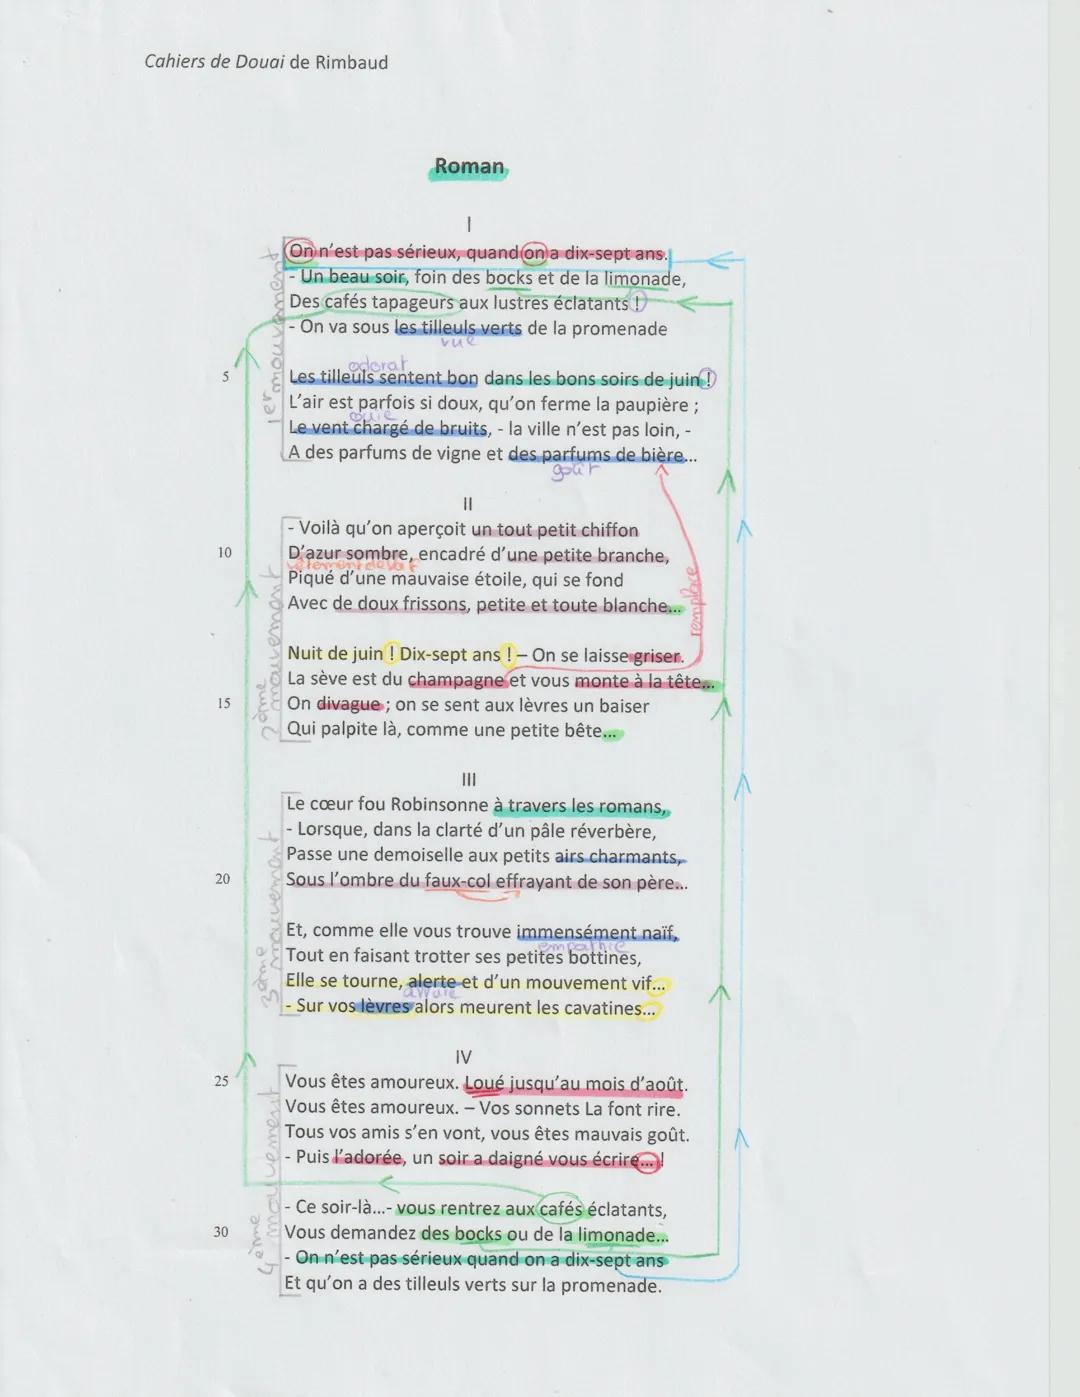 Cahiers de Douai de Rimbaud
Roman
I
On n'est pas sérieux, quand on a dix-sept ans.
- Un beau soir, foin des bocks et de la limonade,
Des cafés tapageurs aux lustres éclatants !
- On va sous les tilleuls verts de la promenade
vue
1er mouvement
odorat
5 Les tilleuls sentent bon dans les bons soirs de juin !
L'air est parfois si doux, qu'on ferme la paupière ;
ouïe
Le vent chargé de bruits, - la ville n'est pas loin, -
A des parfums de vigne et des parfums de bière...
goût
II
- Voilà qu'on aperçoit un tout petit chiffon
10 D'azur sombre, encadré d'une petite branche,
Piqué d'une mauvaise étoile, qui se fond
Avec de doux frissons, petite et toute blanche...
remplace
2ème mouvement
Nuit de juin ! Dix-sept ans ! – On se laisse griser.
La sève est du champagne et vous monte à la tête...
15 On divague ; on se sent aux lèvres un baiser
Qui palpite là, comme une petite bête...
III
Le cœur fou Robinsonne à travers les romans,
- Lorsque, dans la clarté d'un pâle réverbère,
Passe une demoiselle aux petits airs charmants,
20 Sous l'ombre du faux-col effrayant de son père...
3ème mouvement
Et, comme elle vous trouve immensément naïf,
empathie
Tout en faisant trotter ses petites bottines,
Elle se tourne, alerte et d'un mouvement vif...
- Sur vos lèvres alors meurent les cavatines...
IV
25 Vous êtes amoureux. Loué jusqu'au mois d'août.
Vous êtes amoureux. – Vos sonnets La font rire.
Tous vos amis s'en vont, vous êtes mauvais goût.
- Puis l'adorée, un soir a daigné vous écrire...!
4ème mouvement
- Ce soir-là...- vous rentrez aux cafés éclatants,
30 Vous demandez des bocks ou de la limonade...
- On n'est pas sérieux quand on a dix-sept ans
Et qu'on a des tilleuls verts sur la promenade.